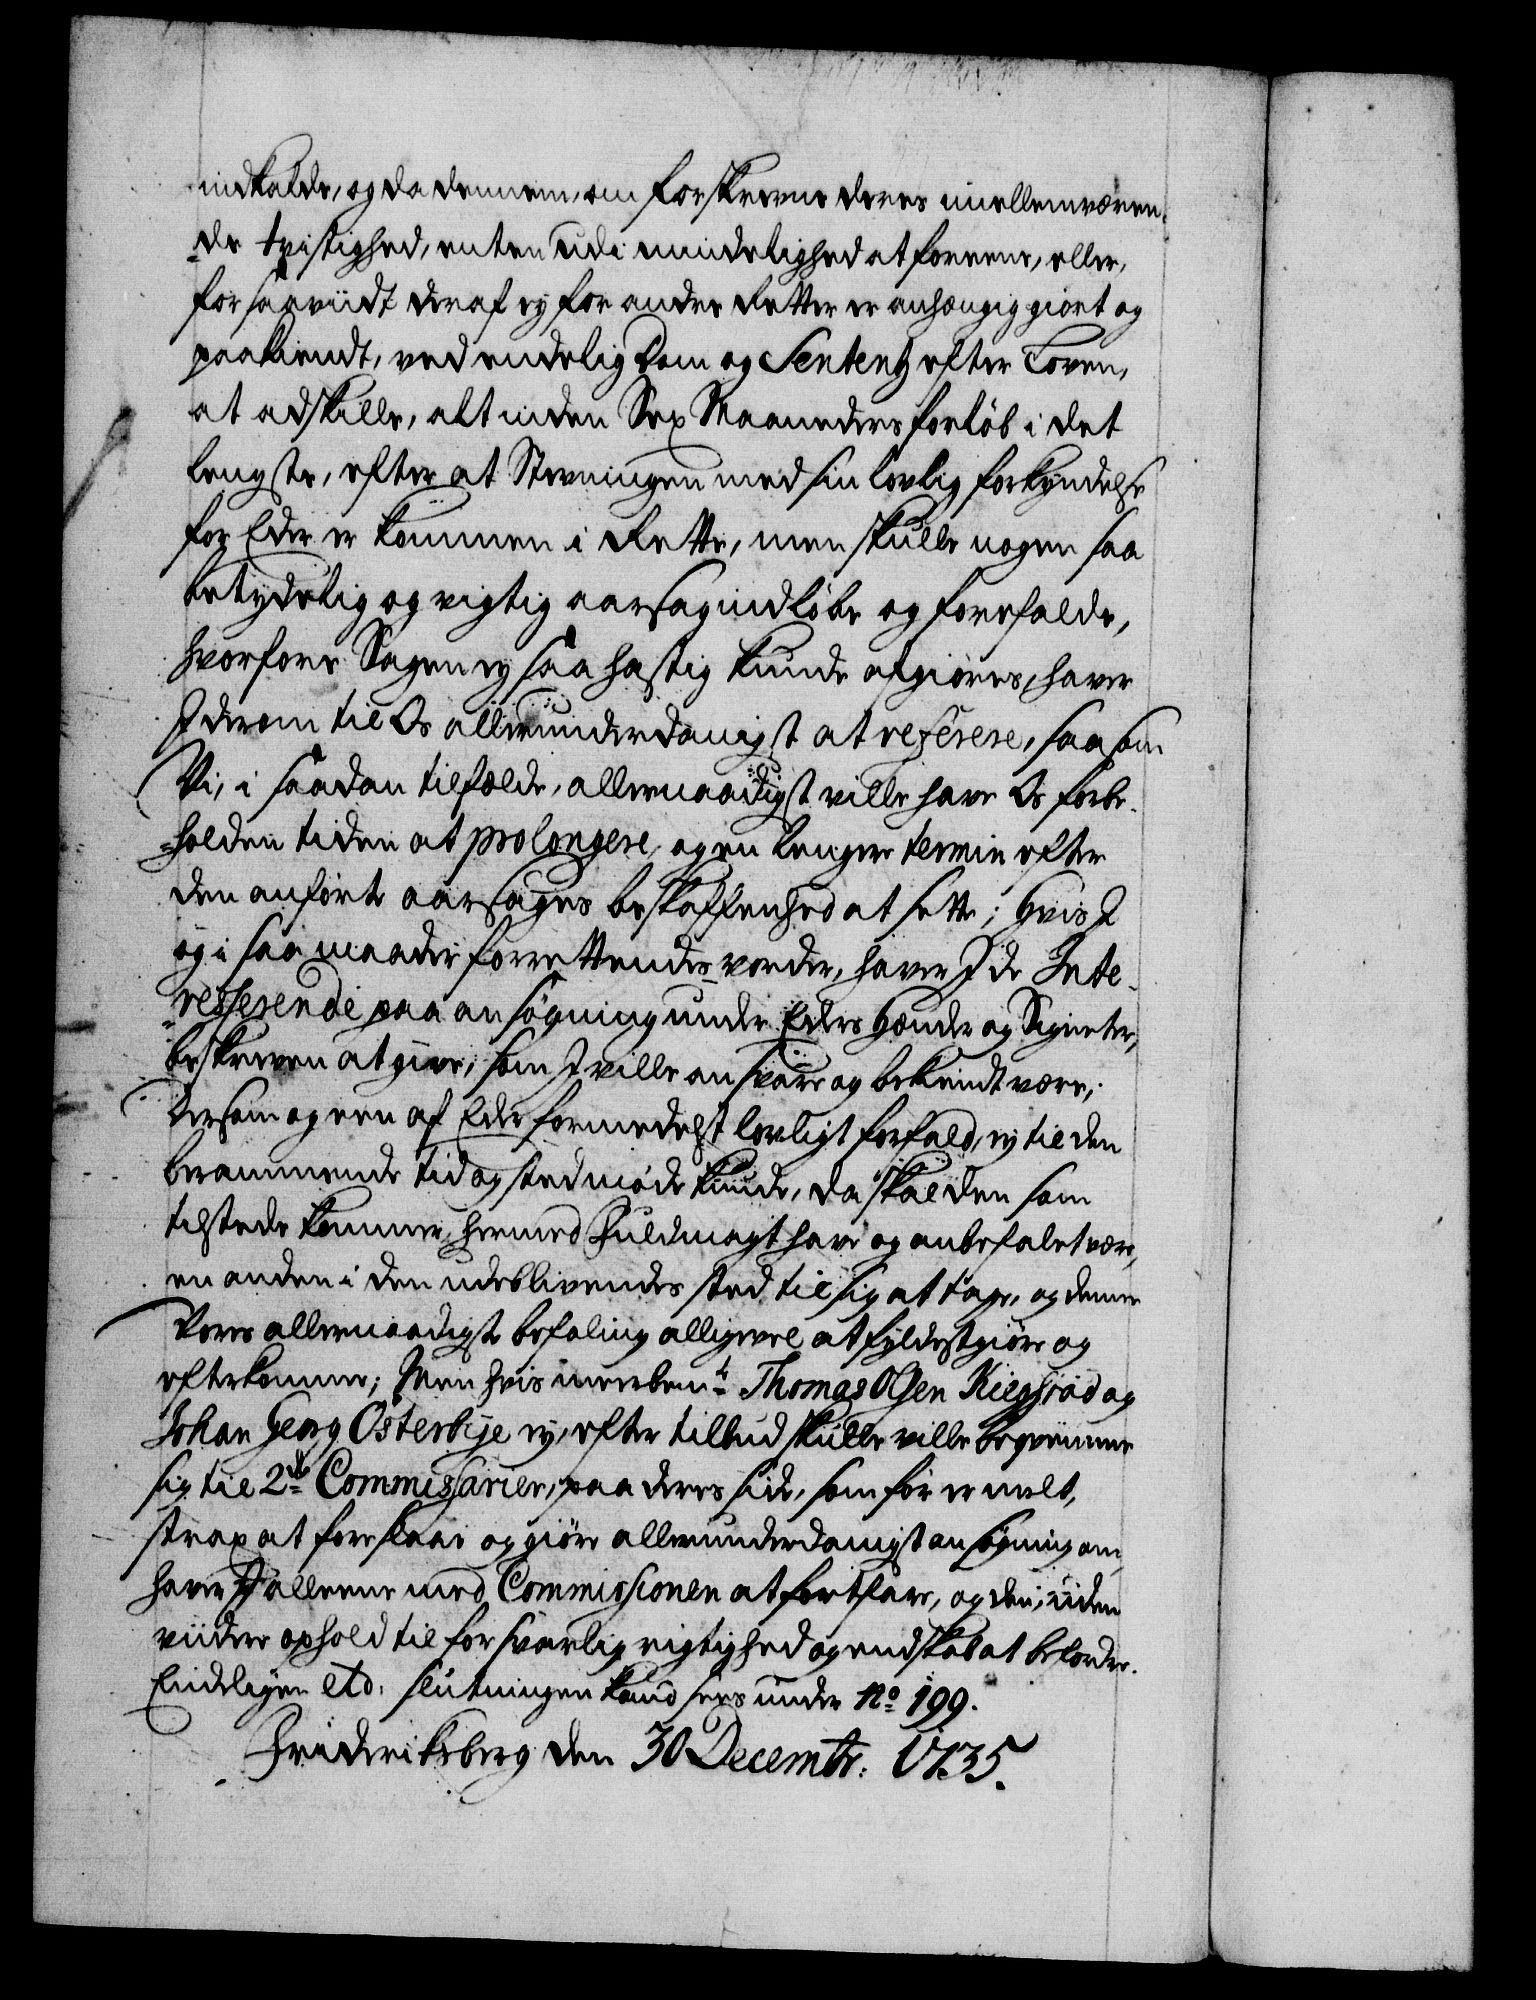 indkalde, og da dennem, om forskrevne deres imellemværen-
de tvistighed, enten udi mindelighed at foreene, eller,
forsaaviidt deraf ej for andre Retter er anhængig giort og
paakiendt, ved endelig Dom og Sententz efter Loven,
at adskille, alt inden Sex Maaneders forløb i det
lengste, efter at Stevningen med sin lovlig forkyndelse
for Eder er kommen i Rette, men skulle nogen saa
betydelig og vigtig aarsag indløbe og forefalde,
hvorfore Sagen ej saa hastig kunde afgiøres, haver
I derom til Os allerunderdanigst at referere, saasom
Vi, i saadan tilfælde, allernaadigst ville have Os forbe-
holden tiden at prolongere, og en lengere termin efter
den anførte aarsages beskaffenhed at sette; Hvis I
og i saa maader forrettendes vorder, haver I de Inte-
resserende paa ansøgning under Eders Hænder og Signeter,
beskreven at give, som I ville ansvare og bekiendt være;
Dersom og een af Eder formedelst lovligt forfald, ej til den
berammende tid og sted møde kunde, da skal den som
tilstede kommer, hermed Fuldmagt have og anbefalet være,
en anden i den udeblivendes sted til sig at tage, og denne
Vores allernaadigste befaling alligevel at fyldestgiøre og
efterkomme; Men hvis meerbemte Thomas Olsen Kiegsrød og
Johan Georg Østerbye ej, efter tilbud skulle ville beqvemme
sig til 2de Commissarier, paa deres side, som før er melt,
strax at foreslaae og giøre allerunderdanigst ansøgning om,
haver I alleene med Commissionen at fortfare, og den, uden
viidere ophold til forsvarlig rigtighed og endskab at befordre.
Endeligen etc: slutningen kand sees under No 199.
Friderichsberg den 30 Decembr: 1735.